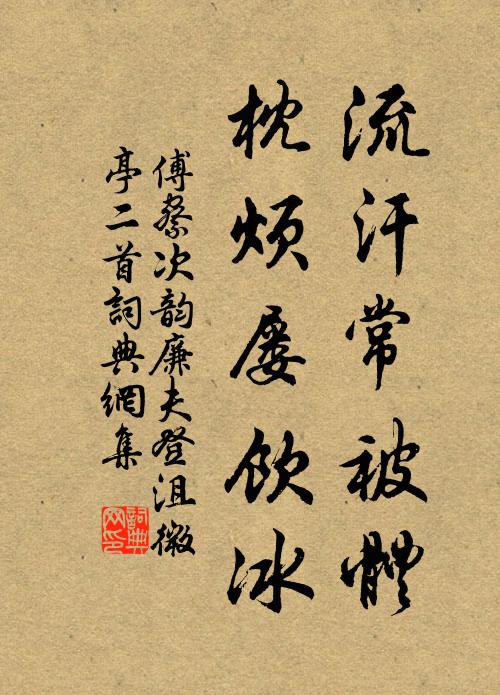 流汗常被體
枕煩屡飲冰
傅察次韵廉夫登沮微
亭二首詞典網集
詞典
网印